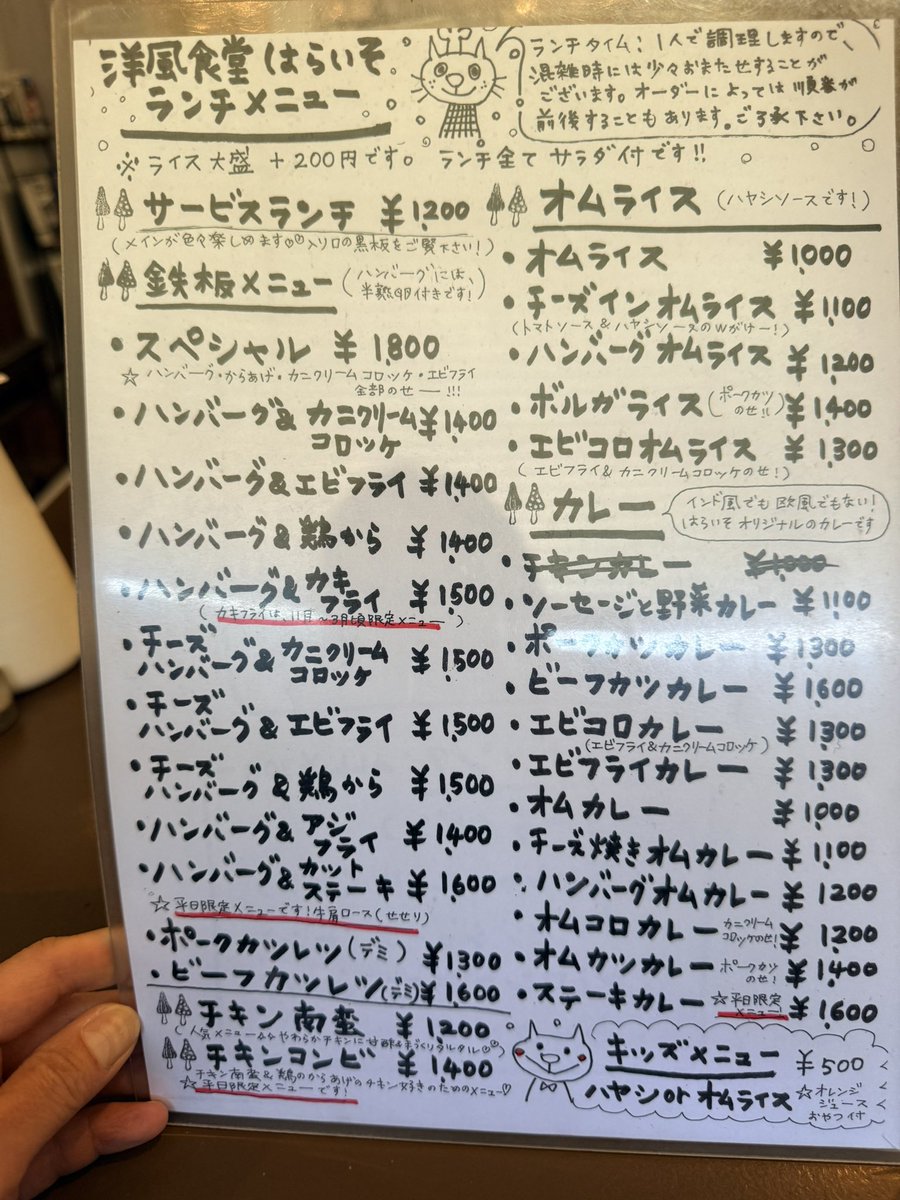 洋風食堂 はらいそ
ランチメニュー
ランチタイム：1人で調理しますので、
混雑時には少々おまたせすることが
ございます。オーダーによっては順番が
前後することもあります。ご了承下さい。
※ ライス大盛 +200円です。 ランチ全て サラダ付です!!
サービスランチ ¥1200
(メインが色々楽しめます♡♡入り口の黒板をご覧下さい!)
鉄板メニュー (ハンバーグには、
半熟卵付きです!)
・スペシャル ¥1,800
☆ ハンバーグ・からあげ・カニクリームコロッケ・エビフライ
全部のせー!!!
・ハンバーグ& カニクリーム
コロッケ ¥1400
・ハンバーグ&エビフライ ¥1400
・ハンバーグ & 鶏から ¥1400
・ハンバーグ& カキ
フライ ¥1,500
(カキフライは、11月〜3月頃限定メニュー)
・チーズ
ハンバーグ& カニクリーム
コロッケ ¥1,500
・チーズ
ハンバーグ & エビフライ ¥1,500
・チーズ
ハンバーグ & 鶏から ¥1,500
・ハンバーグ& アジ
フライ ¥1,400
・ハンバーグ& カット
ステーキ ¥1600
☆平日限定メニューです!牛肩ロース(せせり)
・ポークカツレツ(デミ) ¥1300
・ビーフカツレツ(デミ) ¥1,600
チキン南蛮 ¥1200
チキンコンビ ¥1,400
チキン南蛮&鶏のからあげのチキン好きのためのメニュー♡
☆平日限定メニューです!
オムライス (ハヤシソースです!)
・オムライス ¥1,000
・チーズインオムライス ¥1,100
(トマトソース&ハヤシソースのWがけー!)
・ハンバーグオムライス ¥1,200
・ボルガライス(ポークカツ
のせ!!) ¥1400
・エビコロオムライス ¥1,300
(エビフライ&カニクリームコロッケのせ!)
カレー インド風でも欧風でもない!
はらいそオリジナルのカレーです
・チキンカレー ¥1000
・ソーセージと野菜カレー ¥1,100
・ポークカツカレー ¥1300
・ビーフカツカレー ¥1600
・エビコロカレー ¥1300
(エビフライ&カニクリームコロッケ)
・エビフライカレー ¥1300
・オムカレー ¥1000
・チーズ焼きオムカレー ¥1,100
・ハンバーグオムカレー ¥1200
・オムコロカレー カニクリーム
コロッケのせ! ¥1200
・オムカツカレー ポークカツ
のせ! ¥1400
・ステーキカレー ☆平日限定
メニュー! ¥1600
キッズメニュー ¥500
ハヤシorオムライス ☆オレンジ
ジュース
おやつ付